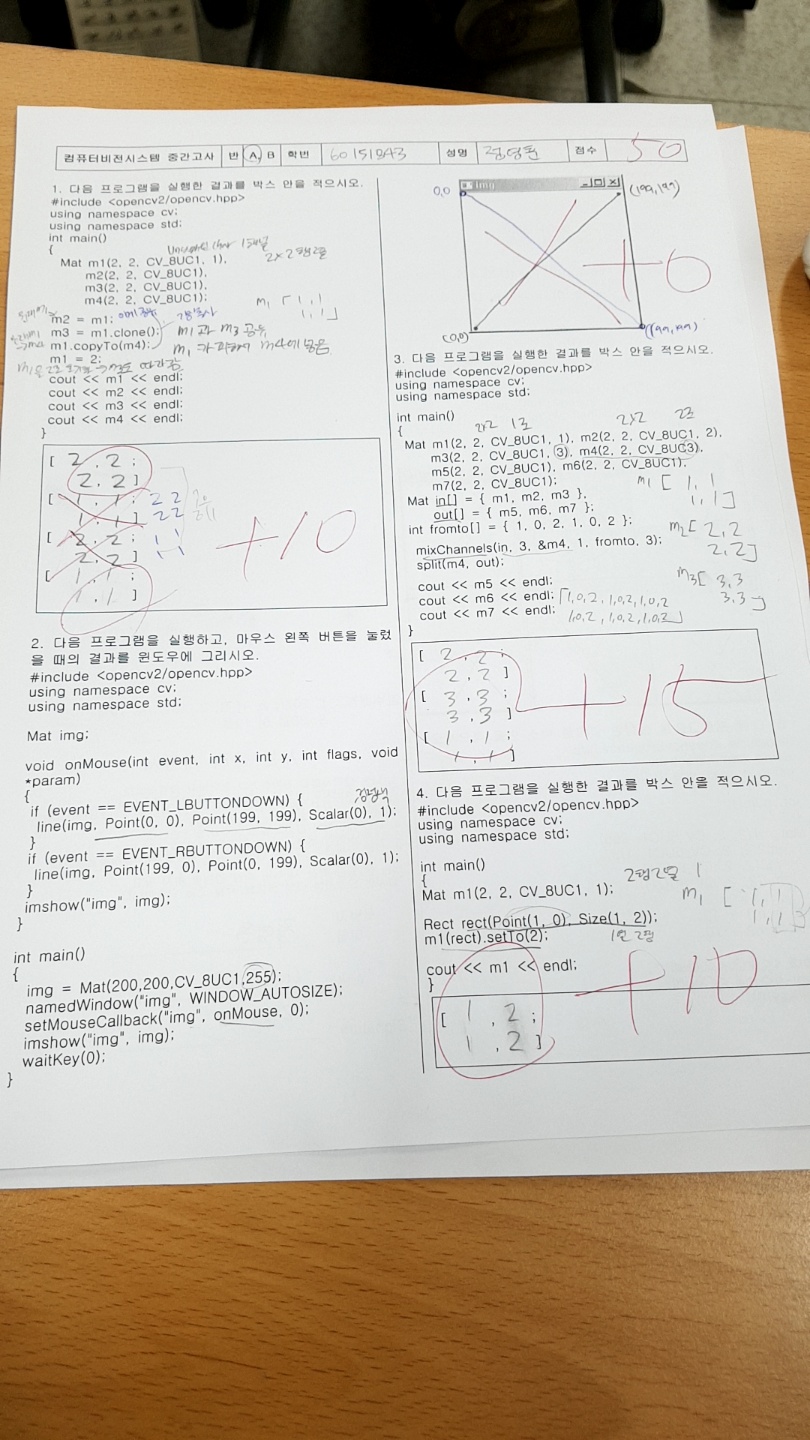 컴퓨터비전시스템 중간고사 반 A B 학번 성명 점수 50
1. 다음 프로그램을 실행한 결과를 박스 안을 적으시오.
#include <opencv2/opencv.hpp>
using namespace cv;
using namespace std;
int main()
{
Mat m1(2, 2, CV_8UC1, 1),
2x2
m2(2, 2, CV_8UC1),
m3(2, 2, CV_8UC1),
m4(2, 2, CV_8UC1);
m1 [ 1, 1
1, 1 ]
m2 = m1;
m3 = m1.clone();
m1과 m3
m1.copyTo(m4);
m1 = 2;
cout << m1 << endl;
cout << m2 << endl;
cout << m3 << endl;
cout << m4 << endl;
}
[ 2 , 2 ;
2 , 2 ]
[ 1 , 1 ; 2 2
1 , 1 ] 2 2
[ 2 , 2 ; 1 1
2 , 2 ] 1 1
[ 1 , 1 ;
1 , 1 ]
+10
2. 다음 프로그램을 실행하고, 마우스 왼쪽 버튼을 눌렀
을 때의 결과를 윈도우에 그리시오.
#include <opencv2/opencv.hpp>
using namespace cv;
using namespace std;
Mat img;
void onMouse(int event, int x, int y, int flags, void
*param)
{
검정색
if (event == EVENT_LBUTTONDOWN) {
line(img, Point(0, 0), Point(199, 199), Scalar(0), 1);
}
if (event == EVENT_RBUTTONDOWN) {
line(img, Point(199, 0), Point(0, 199), Scalar(0), 1);
}
imshow("img", img);
}
int main()
{
img = Mat(200,200,CV_8UC1,255);
namedWindow("img", WINDOW_AUTOSIZE);
setMouseCallback("img", onMouse, 0);
imshow("img", img);
waitKey(0);
}
0,0 img (199,199)
+0
(0,0) (199,199)
3. 다음 프로그램을 실행한 결과를 박스 안을 적으시오.
#include <opencv2/opencv.hpp>
using namespace cv;
using namespace std;
int main()
{
2x2 2x2
Mat m1(2, 2, CV_8UC1, 1), m2(2, 2, CV_8UC1, 2),
m3(2, 2, CV_8UC1, 3), m4(2, 2, CV_8UC3),
m5(2, 2, CV_8UC1), m6(2, 2, CV_8UC1),
m7(2, 2, CV_8UC1);
m1 [ 1, 1
1, 1 ]
Mat in[] = { m1, m2, m3 },
out[] = { m5, m6, m7 };
int fromto[] = { 1, 0, 2, 1, 0, 2 };
m2 [ 2, 2
2, 2 ]
mixChannels(in, 3, &m4, 1, fromto, 3);
split(m4, out);
m3 [ 3, 3
3, 3 ]
cout << m5 << endl;
cout << m6 << endl; [1,0,2, 1,0,2, 1,0,2
cout << m7 << endl; 1,0,2, 1,0,2, 1,0,2]
}
[ 2 , 2 ;
2 , 2 ]
[ 3 , 3 ;
3 , 3 ]
[ 1 , 1 ;
1 , 1 ]
+15
4. 다음 프로그램을 실행한 결과를 박스 안을 적으시오.
#include <opencv2/opencv.hpp>
using namespace cv;
using namespace std;
int main()
{
2행2열 1
Mat m1(2, 2, CV_8UC1, 1);
m1 [ 1, 1
1, 1 ]
Rect rect(Point(1, 0), Size(1, 2));
m1(rect).setTo(2);
1열 2행
cout << m1 << endl;
}
[ 1 , 2 ;
1 , 2 ]
+10